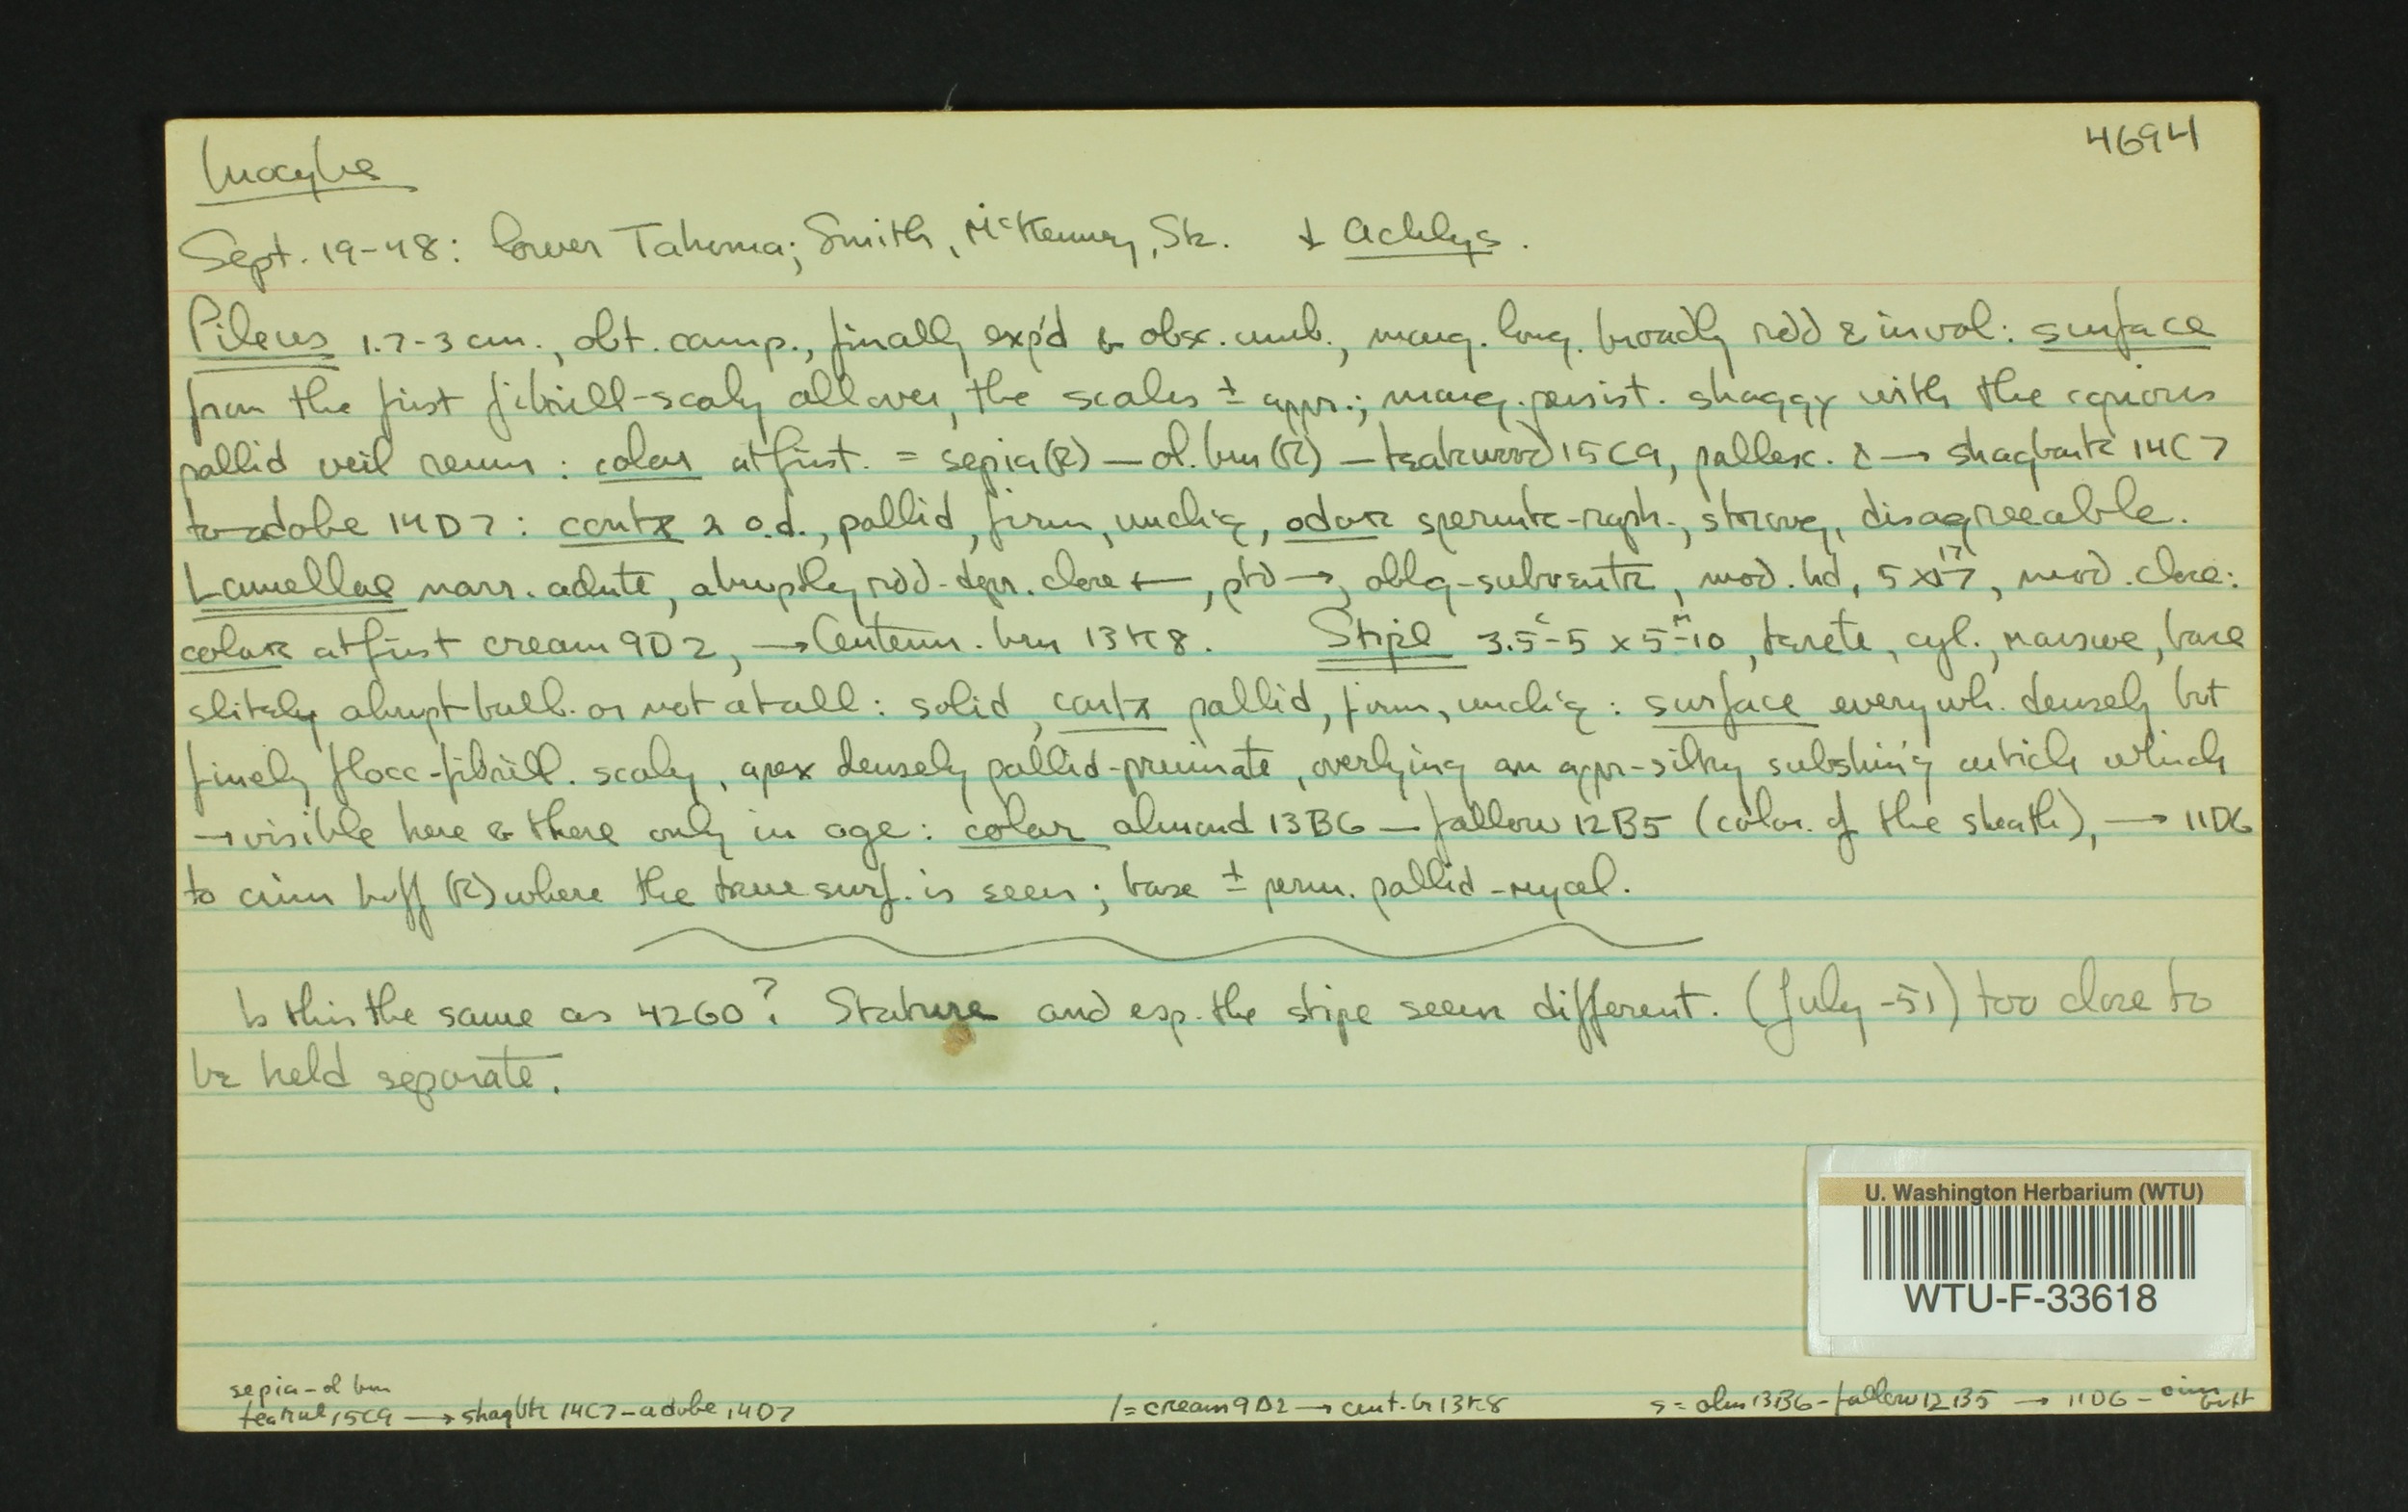 Inocybe
4694
Sept. 19-48: lower Tahoma; Smith, McKenny, St. ↓ Achlys.
Pileus 1.7-3 cm., obt. camp., finally exp'd & obsc. umb., marg. long. broadly rdd & invol: surface
from the first fibrill-scaly all over, the scales ± appr.; marg. persist. shaggy with the copious
pallid veil remn: color at first = sepia (R) — ol. brn (R) — teakwood 15C9, pallesc. & → shagbark 14C7
to adobe 14D7: contx o.d., pallid, firm, unch'g, odor spermtc-raph., strong, disagreeable.
Lamellae narr. adnte, abruptly rdd-depr. close ←, ptd →, oblq-subventr, mod. bd, 5 x 17, mod. close:
color at first cream 9D2, → Centenn. brn 13K8. Stipe 3.5c-5 x 5m-10, terete, cyl., massive, base
slitely abrupt bulb. or not at all: solid, contx pallid, firm, unch'g: surface everywh. densely but
finely flocc-fibrill. scaly, apex densely pallid-pruinate, overlying an appr-silky subshin'g cuticle which
→ visible here & there only in age: color almond 13B6 — fallow 12B5 (color of the sheath), → 11D6
to cinn buff (R) where the true surf. is seen; base ± perm. pallid-mycel.
Is this the same as 4260? Stature and esp. the stipe seem different. (July-51) too close to
be held separate.
U. Washington Herbarium (WTU)
WTU-F-33618
sepia-ol brn
15C9 → shagbk 14C7-adobe 14D7
l = cream 9D2 → cent. br 13K8
s = alm 13B6-fallow 12B5 → 11D6 - cinn
buff